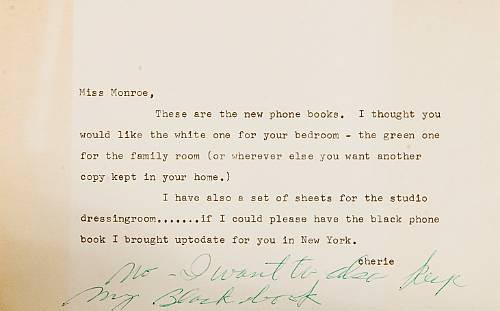 Miss Monroe,
These are the new phone books. I thought you
would like the white one for your bedroom - the green one
for the family room (or wherever else you want another
copy kept in your home.)
I have also a set of sheets for the studio
dressingroom.......if I could please have the black phone
book I brought uptodate for you in New York.
Cherie
no - I want to also keep
my Black book